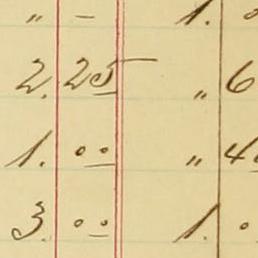 „ – 1. 0
2. 25 „ 6
1. 00 „ 4
3. 00 1. 0